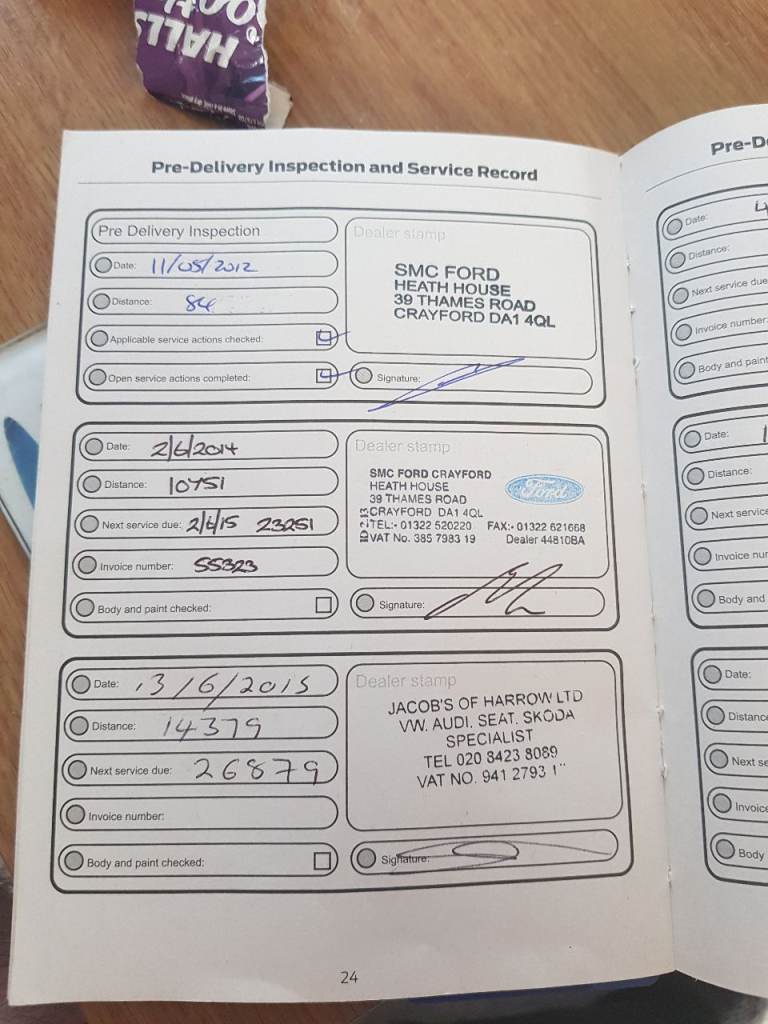 HALLS
Pre-Delivery Inspection and Service Record
Pre Delivery Inspection
Date: 11/05/2012
Distance: 84
Applicable service actions checked:
Open service actions completed:
Dealer stamp
SMC FORD
HEATH HOUSE
39 THAMES ROAD
CRAYFORD DA1 4QL
Signature:
Date: 2/6/2014
Distance: 10751
Next service due: 2/6/15 23251
Invoice number: 55323
Body and paint checked:
Dealer stamp
SMC FORD CRAYFORD
HEATH HOUSE
39 THAMES ROAD
CRAYFORD DA1 4QL
TEL:- 01322 520220 FAX:- 01322 621668
VAT No. 385 7983 19 Dealer 44810BA
Ford
Signature:
Date: 13/6/2015
Distance: 14379
Next service due: 26879
Invoice number:
Body and paint checked:
Dealer stamp
JACOB'S OF HARROW LTD
VW. AUDI. SEAT. SKODA
SPECIALIST
TEL 020 8423 8089
VAT NO. 941 2793 1
Signature:
24
Pre-D
Date:
Distance:
Next service due
Invoice number:
Body and paint
Date:
Distance:
Next service
Invoice nur
Body and
Date:
Distance
Next se
Invoice
Body